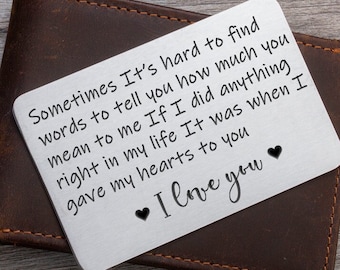 Sometimes It's hard to find
words to tell you how much you
mean to me If I did anything
right in my life It was when I
gave my hearts to you
I love you